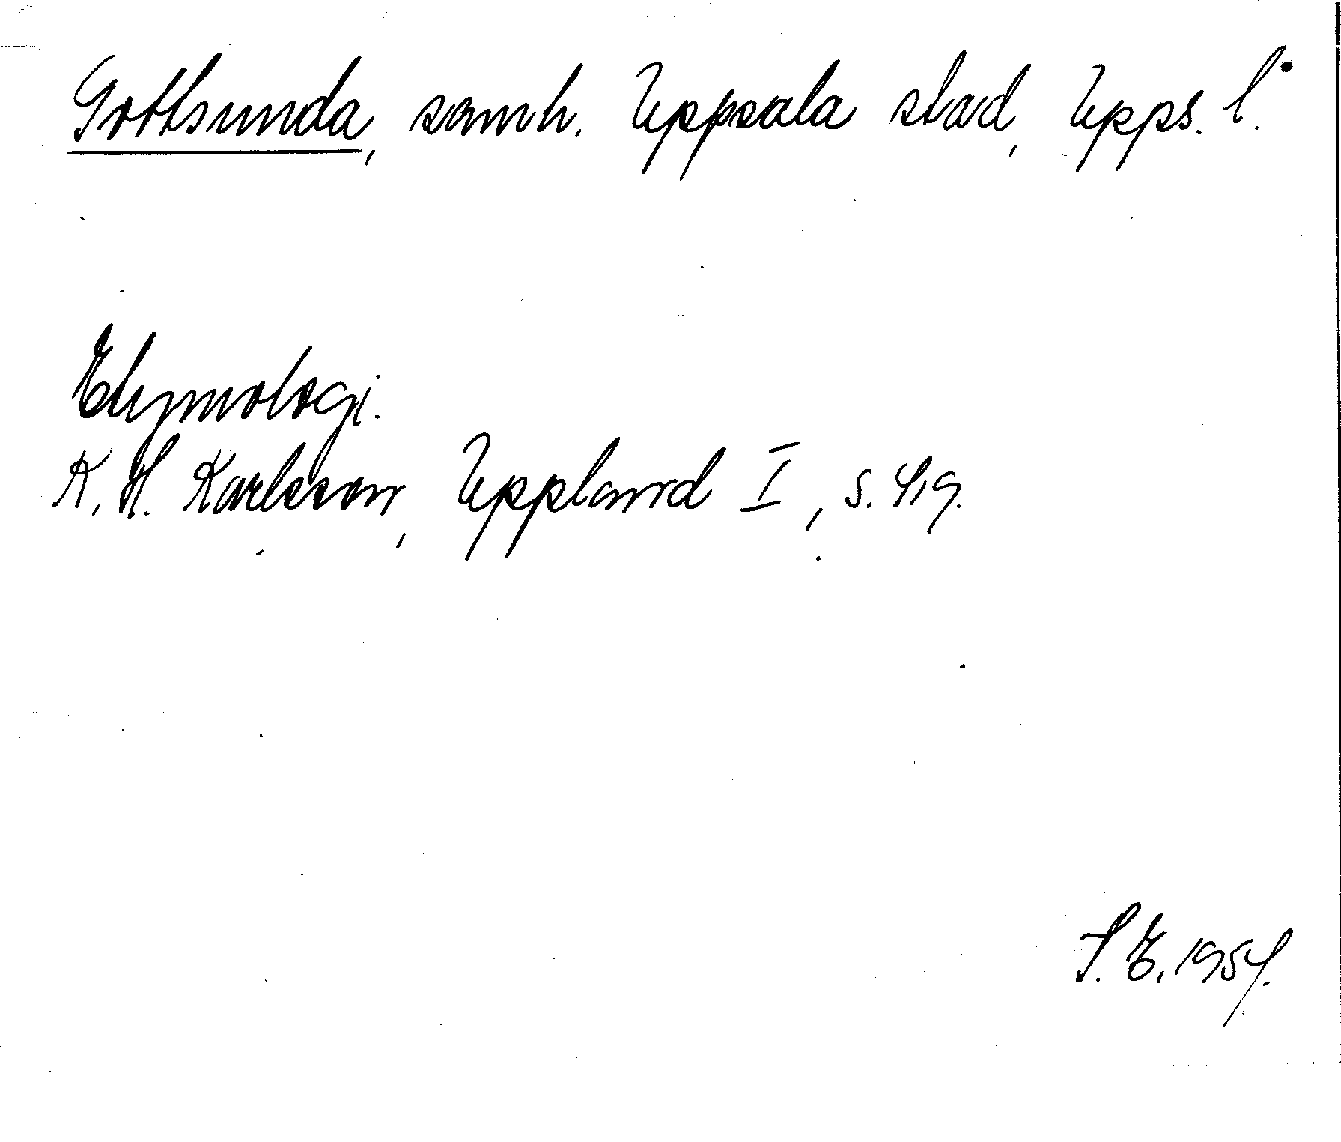 Gottsunda, samh. Uppsala stad, Upps. l.
Etymologi.
K. H. Karlsson, Uppland I, s. 419.
S. E. 1954.